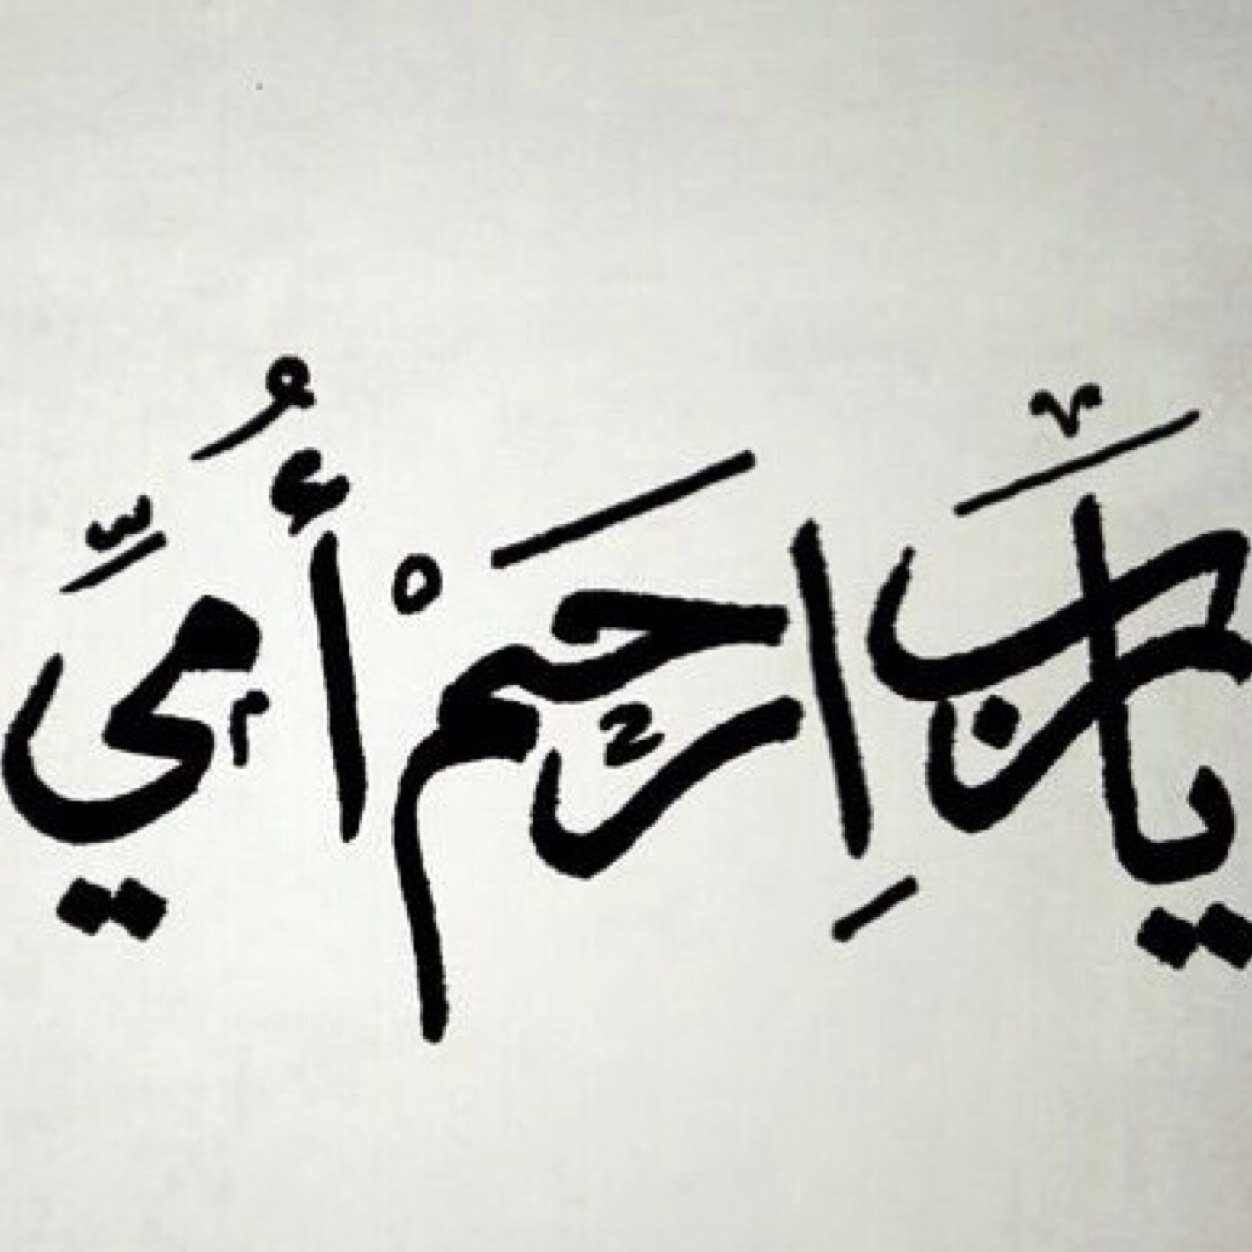 يَا رب اِرحَمْ أُمِّي